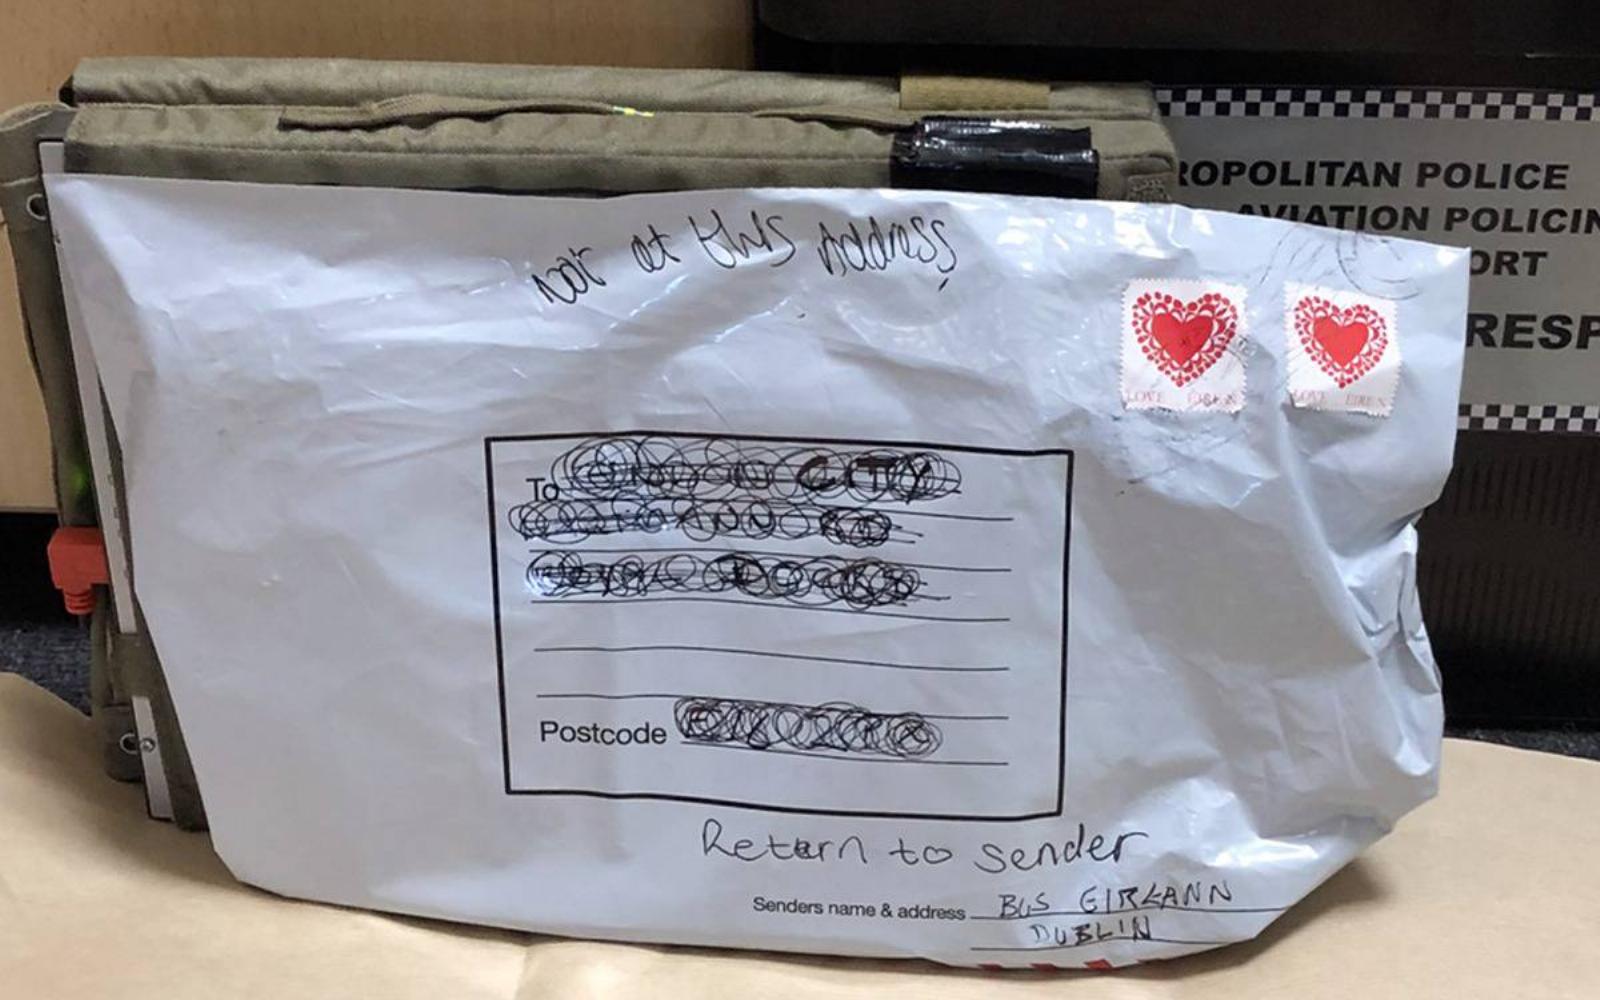 ROPOLITAN POLICE
AVIATION POLICIN
ORT
RESP
Not at this Address
LOVE EIREAN
LOVE EIREN
To CITY
Postcode
Return to sender
Senders name & address BUS EIREANN
DUBLIN